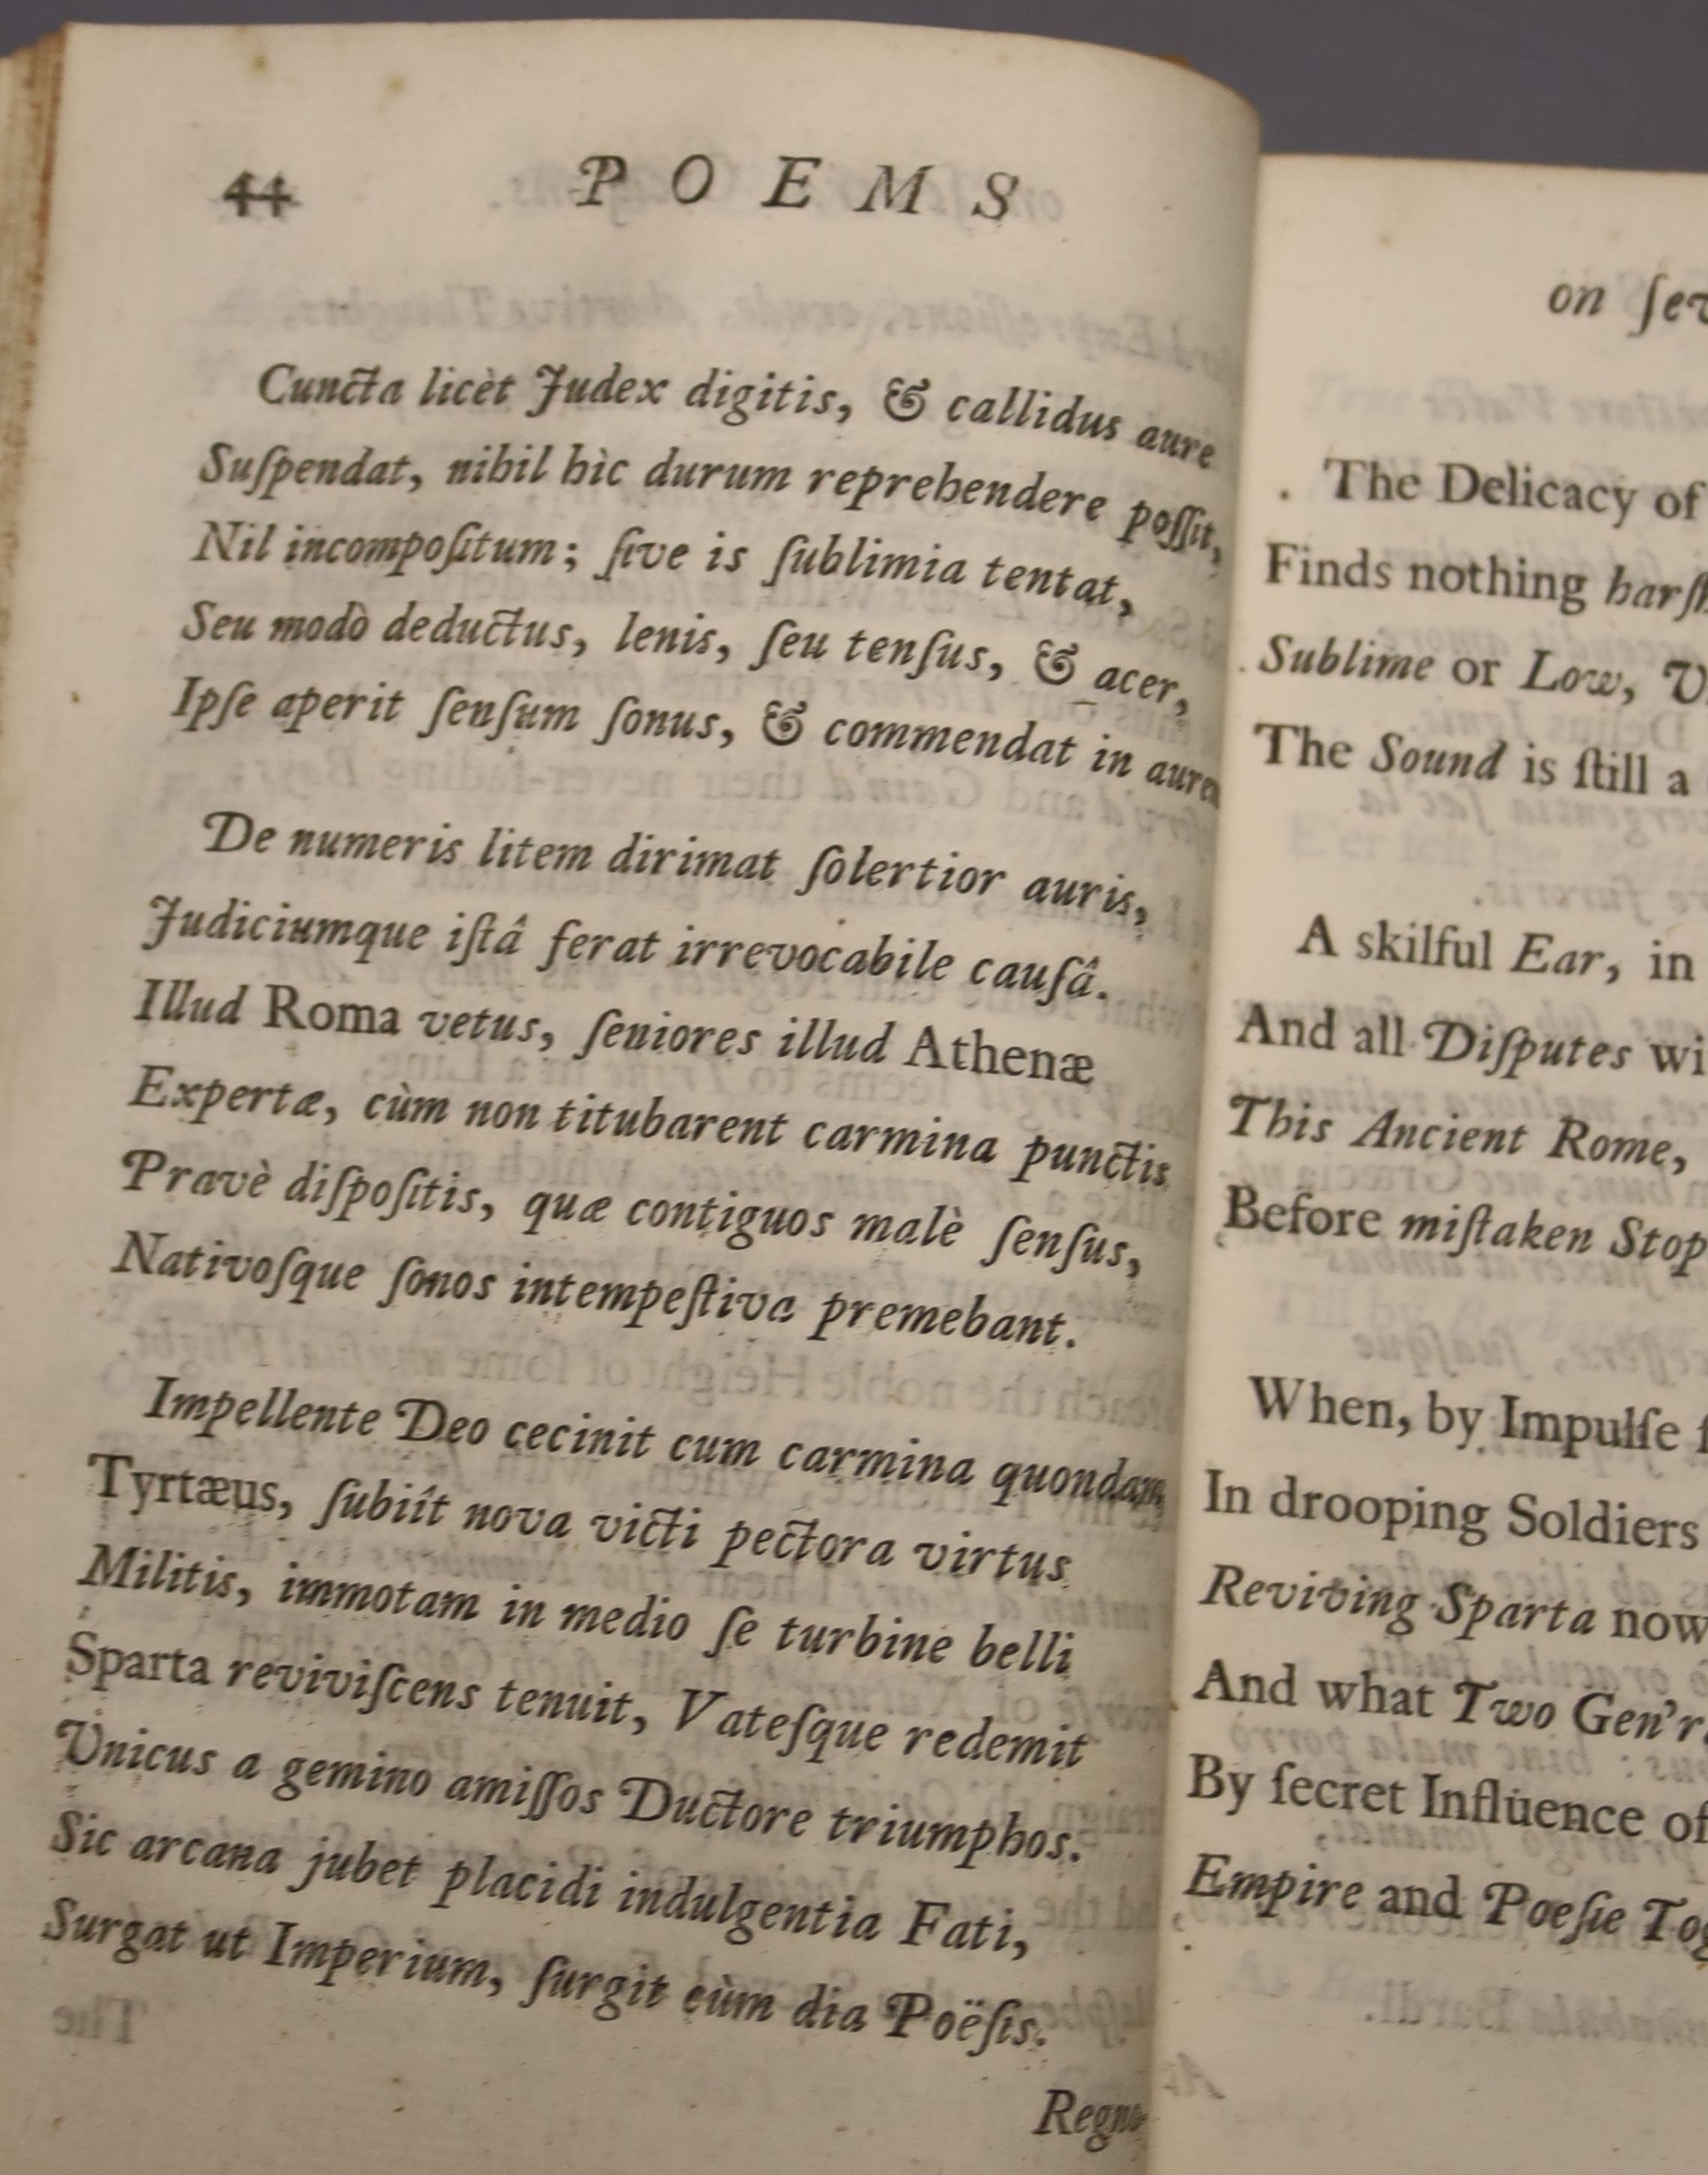 44 POEMS
Cuncta licèt Judex digitis, & callidus aure
Suſpendat, nihil hìc durum reprehendere poſſit,
Nil incompoſitum; ſive is ſublimia tentat,
Seu modò deductus, lenis, ſeu tenſus, & acer,
Ipſe aperit ſenſum ſonus, & commendat in aurem
De numeris litem dirimat ſolertior auris,
Judiciumque iſtâ ferat irrevocabile cauſâ.
Illud Roma vetus, ſeniores illud Athenæ
Expertæ, cùm non titubarent carmina punctis
Pravè diſpoſitis, quæ contiguos malè ſenſus,
Nativoſque ſonos intempeſtiva premebant.
Impellente Deo cecinit cum carmina quondam
Tyrtæus, ſubiît nova victi pectora virtus
Militis, immotam in medio ſe turbine belli
Sparta reviviſcens tenuit, Vateſque redemit
Unicus a gemino amiſſos Ductore triumphos.
Sic arcana jubet placidi indulgentia Fati,
Surgat ut Imperium, ſurgit cùm dia Poëſis.
on ſev
The Delicacy of
Finds nothing harſh
Sublime or Low, V
The Sound is ſtill a
A skilful Ear, in
And all Diſputes wi
This Ancient Rome,
Before miſtaken Stop
When, by Impulſe f
In drooping Soldiers
Reviving Sparta now
And what Two Gen'r
By ſecret Influence of
Empire and Poeſie Tog